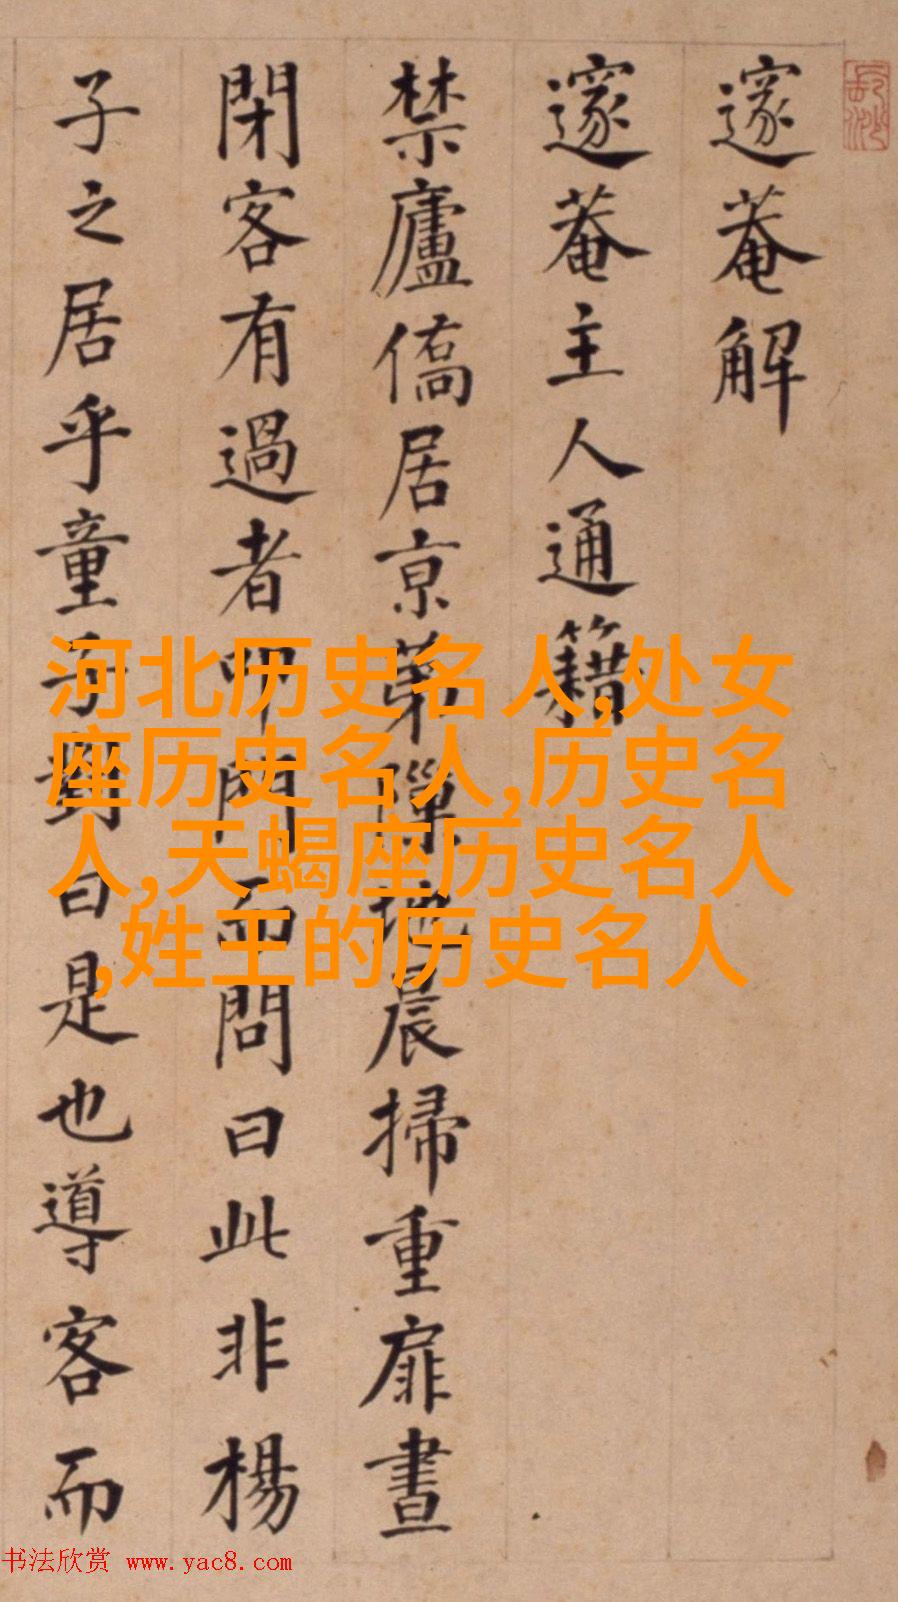 邃菴解
邃菴主人通籍
禁廬僑居京第隙地晨掃重扉晝
閉客有過者叩門而問曰此非楊
子之居乎童子對曰是也導客而
河北历史名人,处女
座历史名人,历史名
人,天蝎座历史名人
,姓王的历史名人
书法欣赏 www.yac8.com